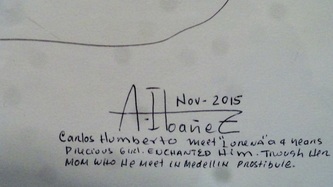 Nov-2015
A-Ibañez
Carlos Humberto meet "Lorena" a 4 years
Precious Girl. Enchanted Him. Trough Her
Mom who He meet in Medellin Prostibule.